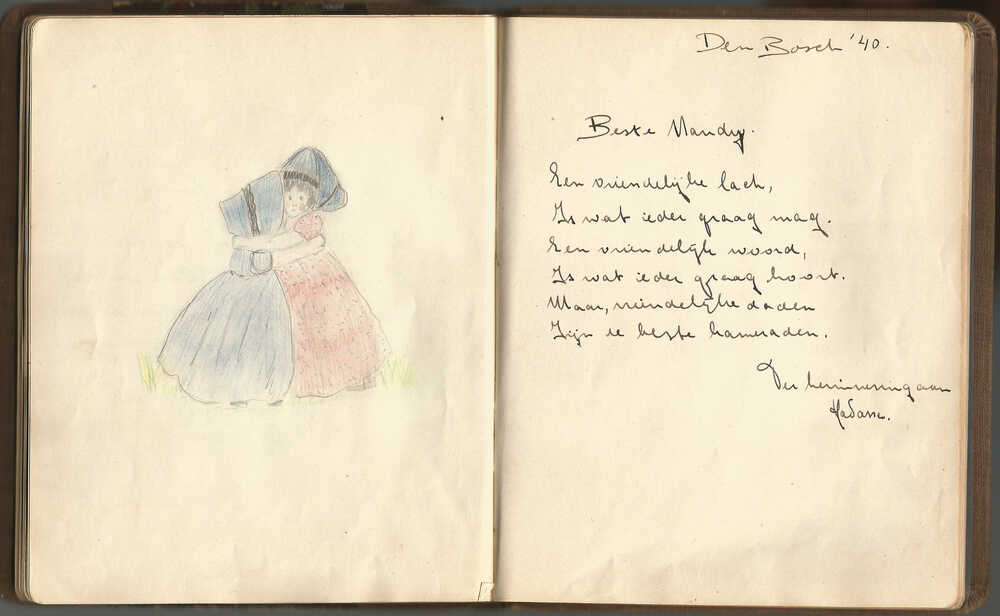 Den Bosch '40.
Beste Mandy.
Een vriendelijke lach,
Is wat ieder graag mag.
Een vriendelijk woord,
Is wat ieder graag hoort.
Maar, vriendelijke daden
Zijn de beste kameraden.
Ter herinnering aan
Hadassa.